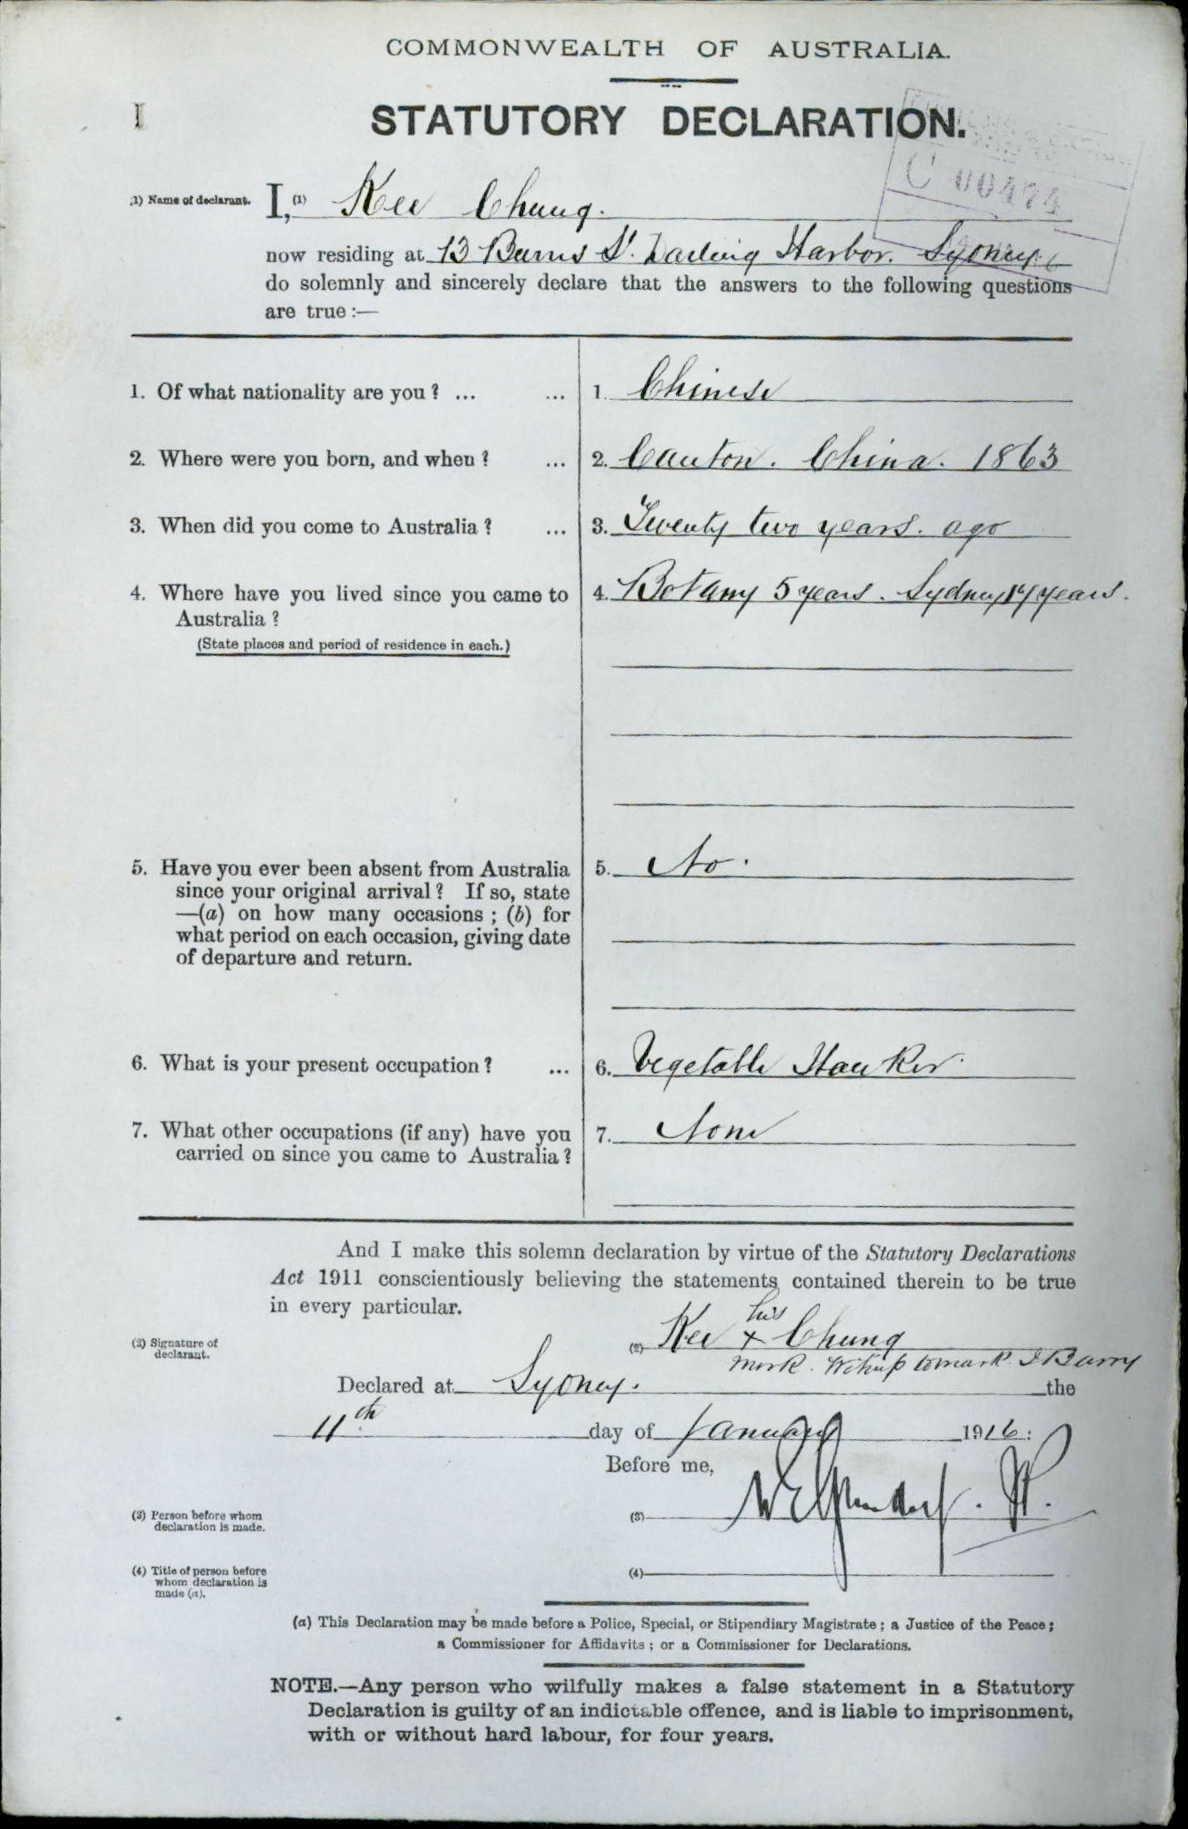 COMMONWEALTH OF AUSTRALIA.
I
STATUTORY DECLARATION.
C 00474
(1) Name of declarant. I, (1) Kee Chung.
now residing at 13 Burns St. Darling Harbor. Sydney.
do solemnly and sincerely declare that the answers to the following questions
are true :—
1. Of what nationality are you ? ... ... 1. Chinese
2. Where were you born, and when ? ... 2. Canton. China. 1863
3. When did you come to Australia ? ... 3. Twenty two years. ago
4. Where have you lived since you came to 4. Botany 5 years. Sydney 17 years.
Australia ?
(State places and period of residence in each.)
5. Have you ever been absent from Australia 5. No.
since your original arrival ? If so, state
—(a) on how many occasions ; (b) for
what period on each occasion, giving date
of departure and return.
6. What is your present occupation ? ... 6. Vegetable Hawker
7. What other occupations (if any) have you 7. None
carried on since you came to Australia ?
And I make this solemn declaration by virtue of the Statutory Declarations
Act 1911 conscientiously believing the statements contained therein to be true
in every particular.
his
(2) Signature of (2) Kee x Chung
declarant.
mark. to mark Barry
Declared at Sydney. the
11th day of January 1916:
Before me,
(3) Person before whom (3) J.P.
declaration is made.
(4) Title of person before (4)
whom declaration is
made (a).
(a) This Declaration may be made before a Police, Special, or Stipendiary Magistrate ; a Justice of the Peace ;
a Commissioner for Affidavits ; or a Commissioner for Declarations.
NOTE.—Any person who wilfully makes a false statement in a Statutory
Declaration is guilty of an indictable offence, and is liable to imprisonment,
with or without hard labour, for four years.